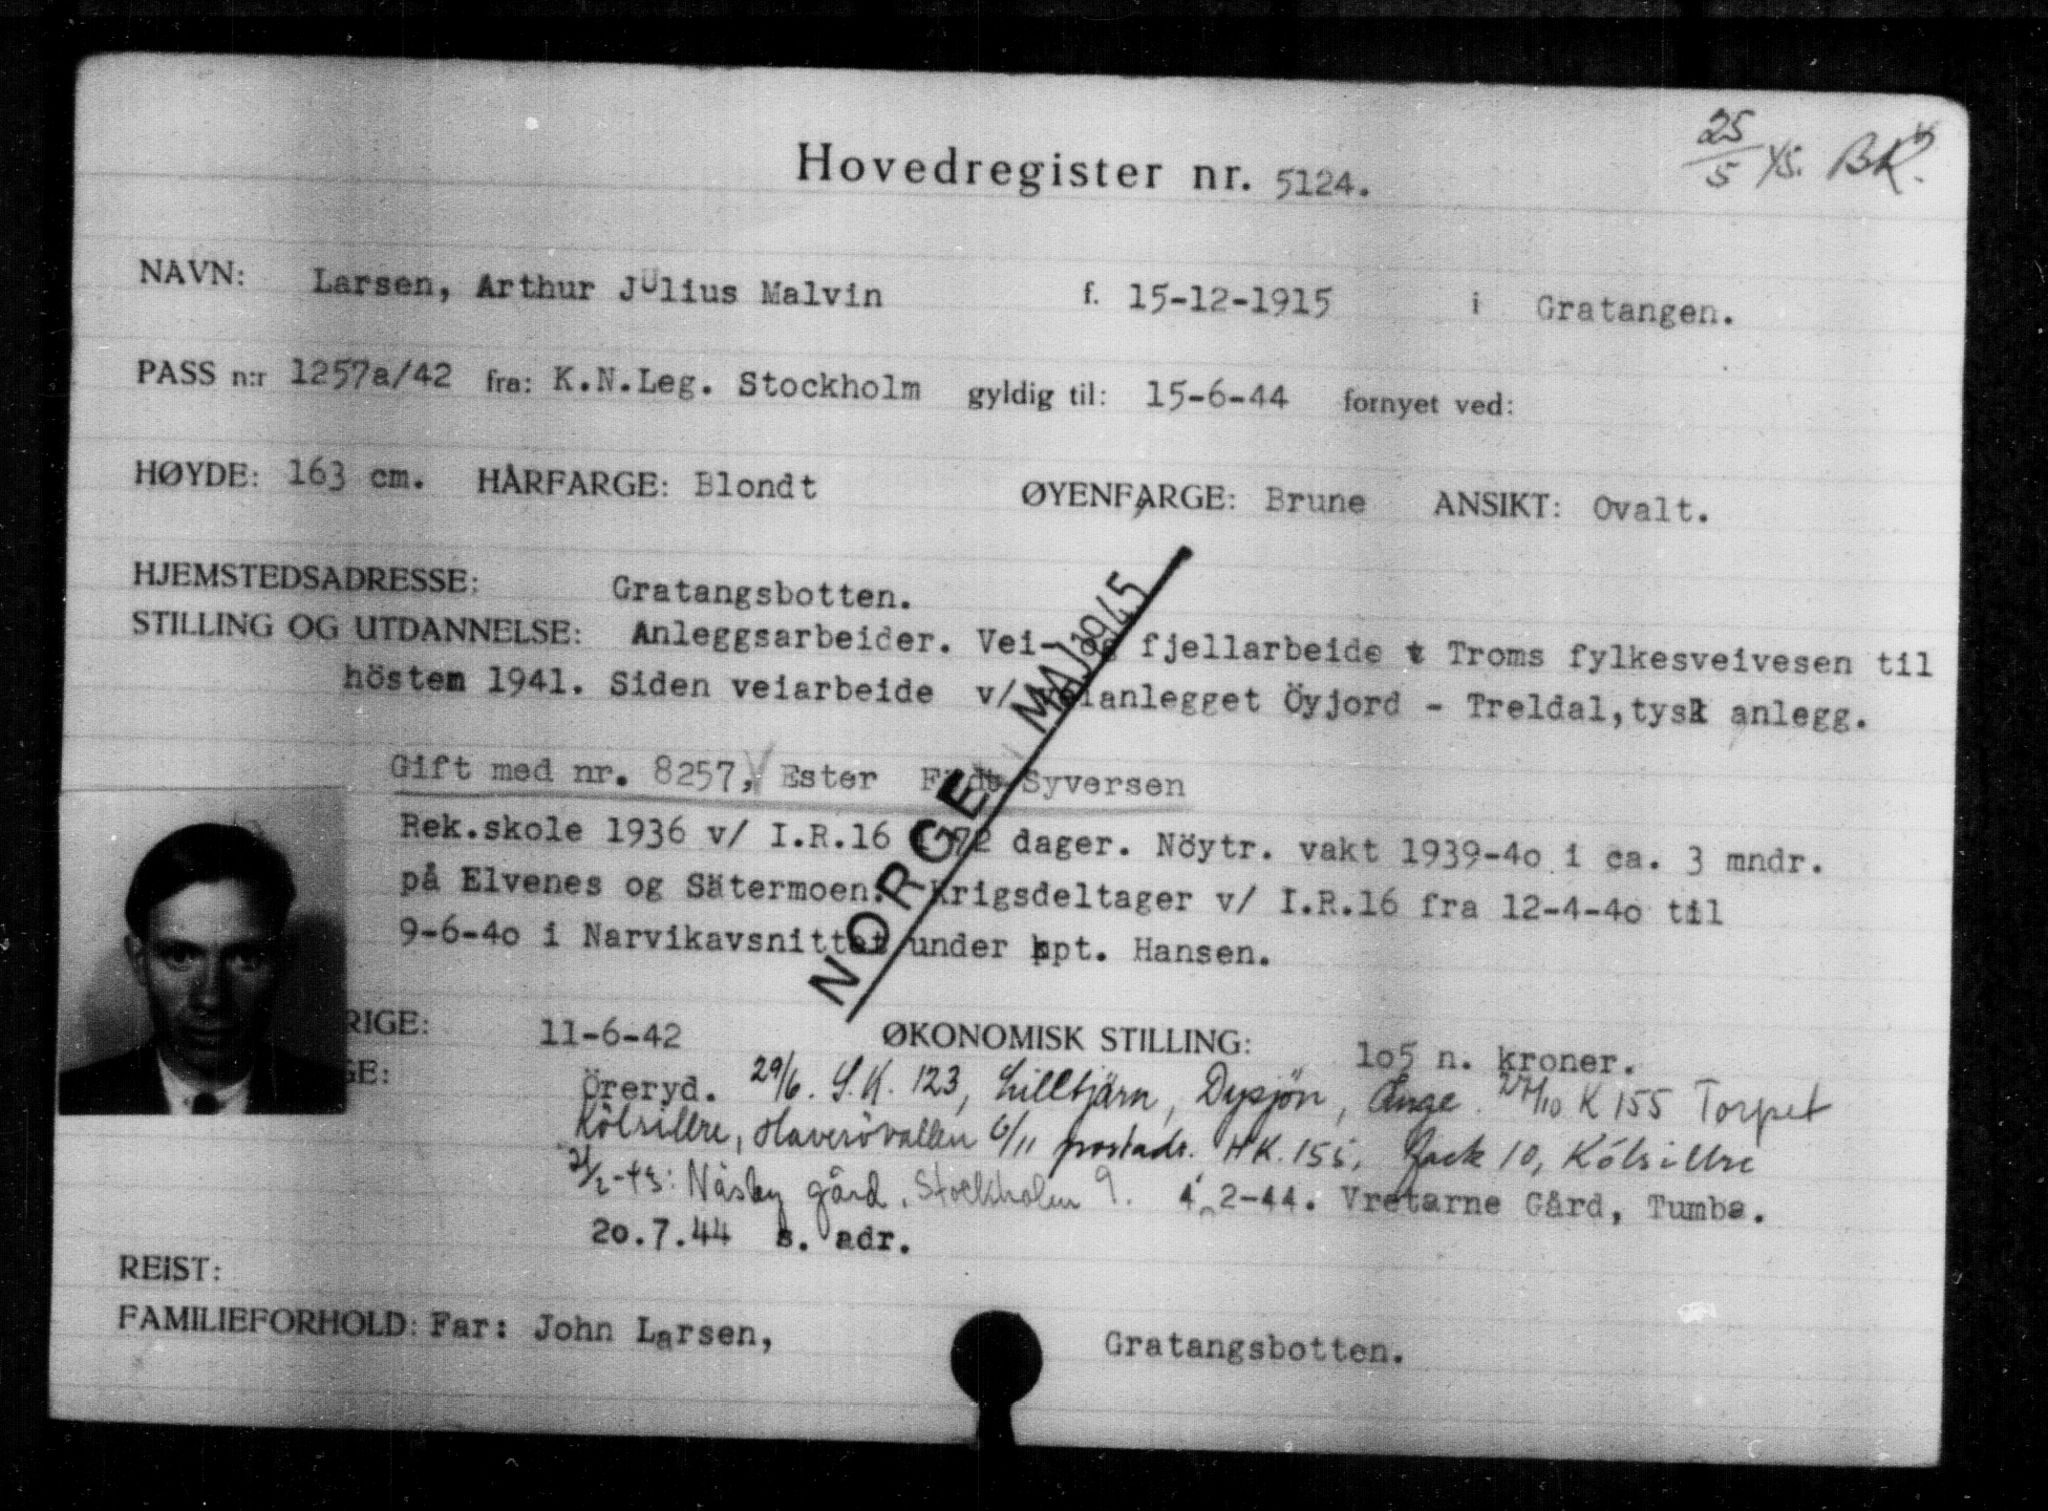 25/5 45. BK.
Hovedregister nr. 5124.
NAVN: Larsen, Arthur Julius Malvin f. 15-12-1915 i Gratangen.
PASS n:r 1257a/42 fra: K.N.Leg. Stockholm gyldig til: 15-6-44 fornyet ved:
HØYDE: 163 cm. HÅRFARGE: Blondt ØYENFARGE: Brune ANSIKT: Ovalt.
HJEMSTEDSADRESSE: Gratangsbotten.
STILLING OG UTDANNELSE: Anleggsarbeider. Vei- og fjellarbeide t Troms fylkesveivesen til
hösten 1941. Siden veiarbeide v/ anlegget Öyjord - Treldal, tysk anlegg.
NORGE MAJ 1945
Gift med nr. 8257, Ester Födt Syversen
Rek.skole 1936 v/ I.R.16 i 72 dager. Nöytr. vakt 1939-4o i ca. 3 mndr.
på Elvenes og Sätermoen. Krigsdeltager v/ I.R.16 fra 12-4-4o til
9-6-4o i Narvikavsnittet under kpt. Hansen.
RIGE: 11-6-42 ØKONOMISK STILLING: 1o5 n. kroner.
GE: Öreryd. 29/6. S.K. 123, Lilltjärn, Dysjön, Ånge. 27/10 K 155 Torpet
Kölsillre, Haverövallen 6/11 postadr. HK. 155, Jack 10, Kölsillre
2/2-43: Näsby gård, Stockholm 9. 4.2-44. Vretarne Gård, Tumba.
2o.7.44 s. adr.
REIST:
FAMILIEFORHOLD: Far: John Larsen, Gratangsbotten.